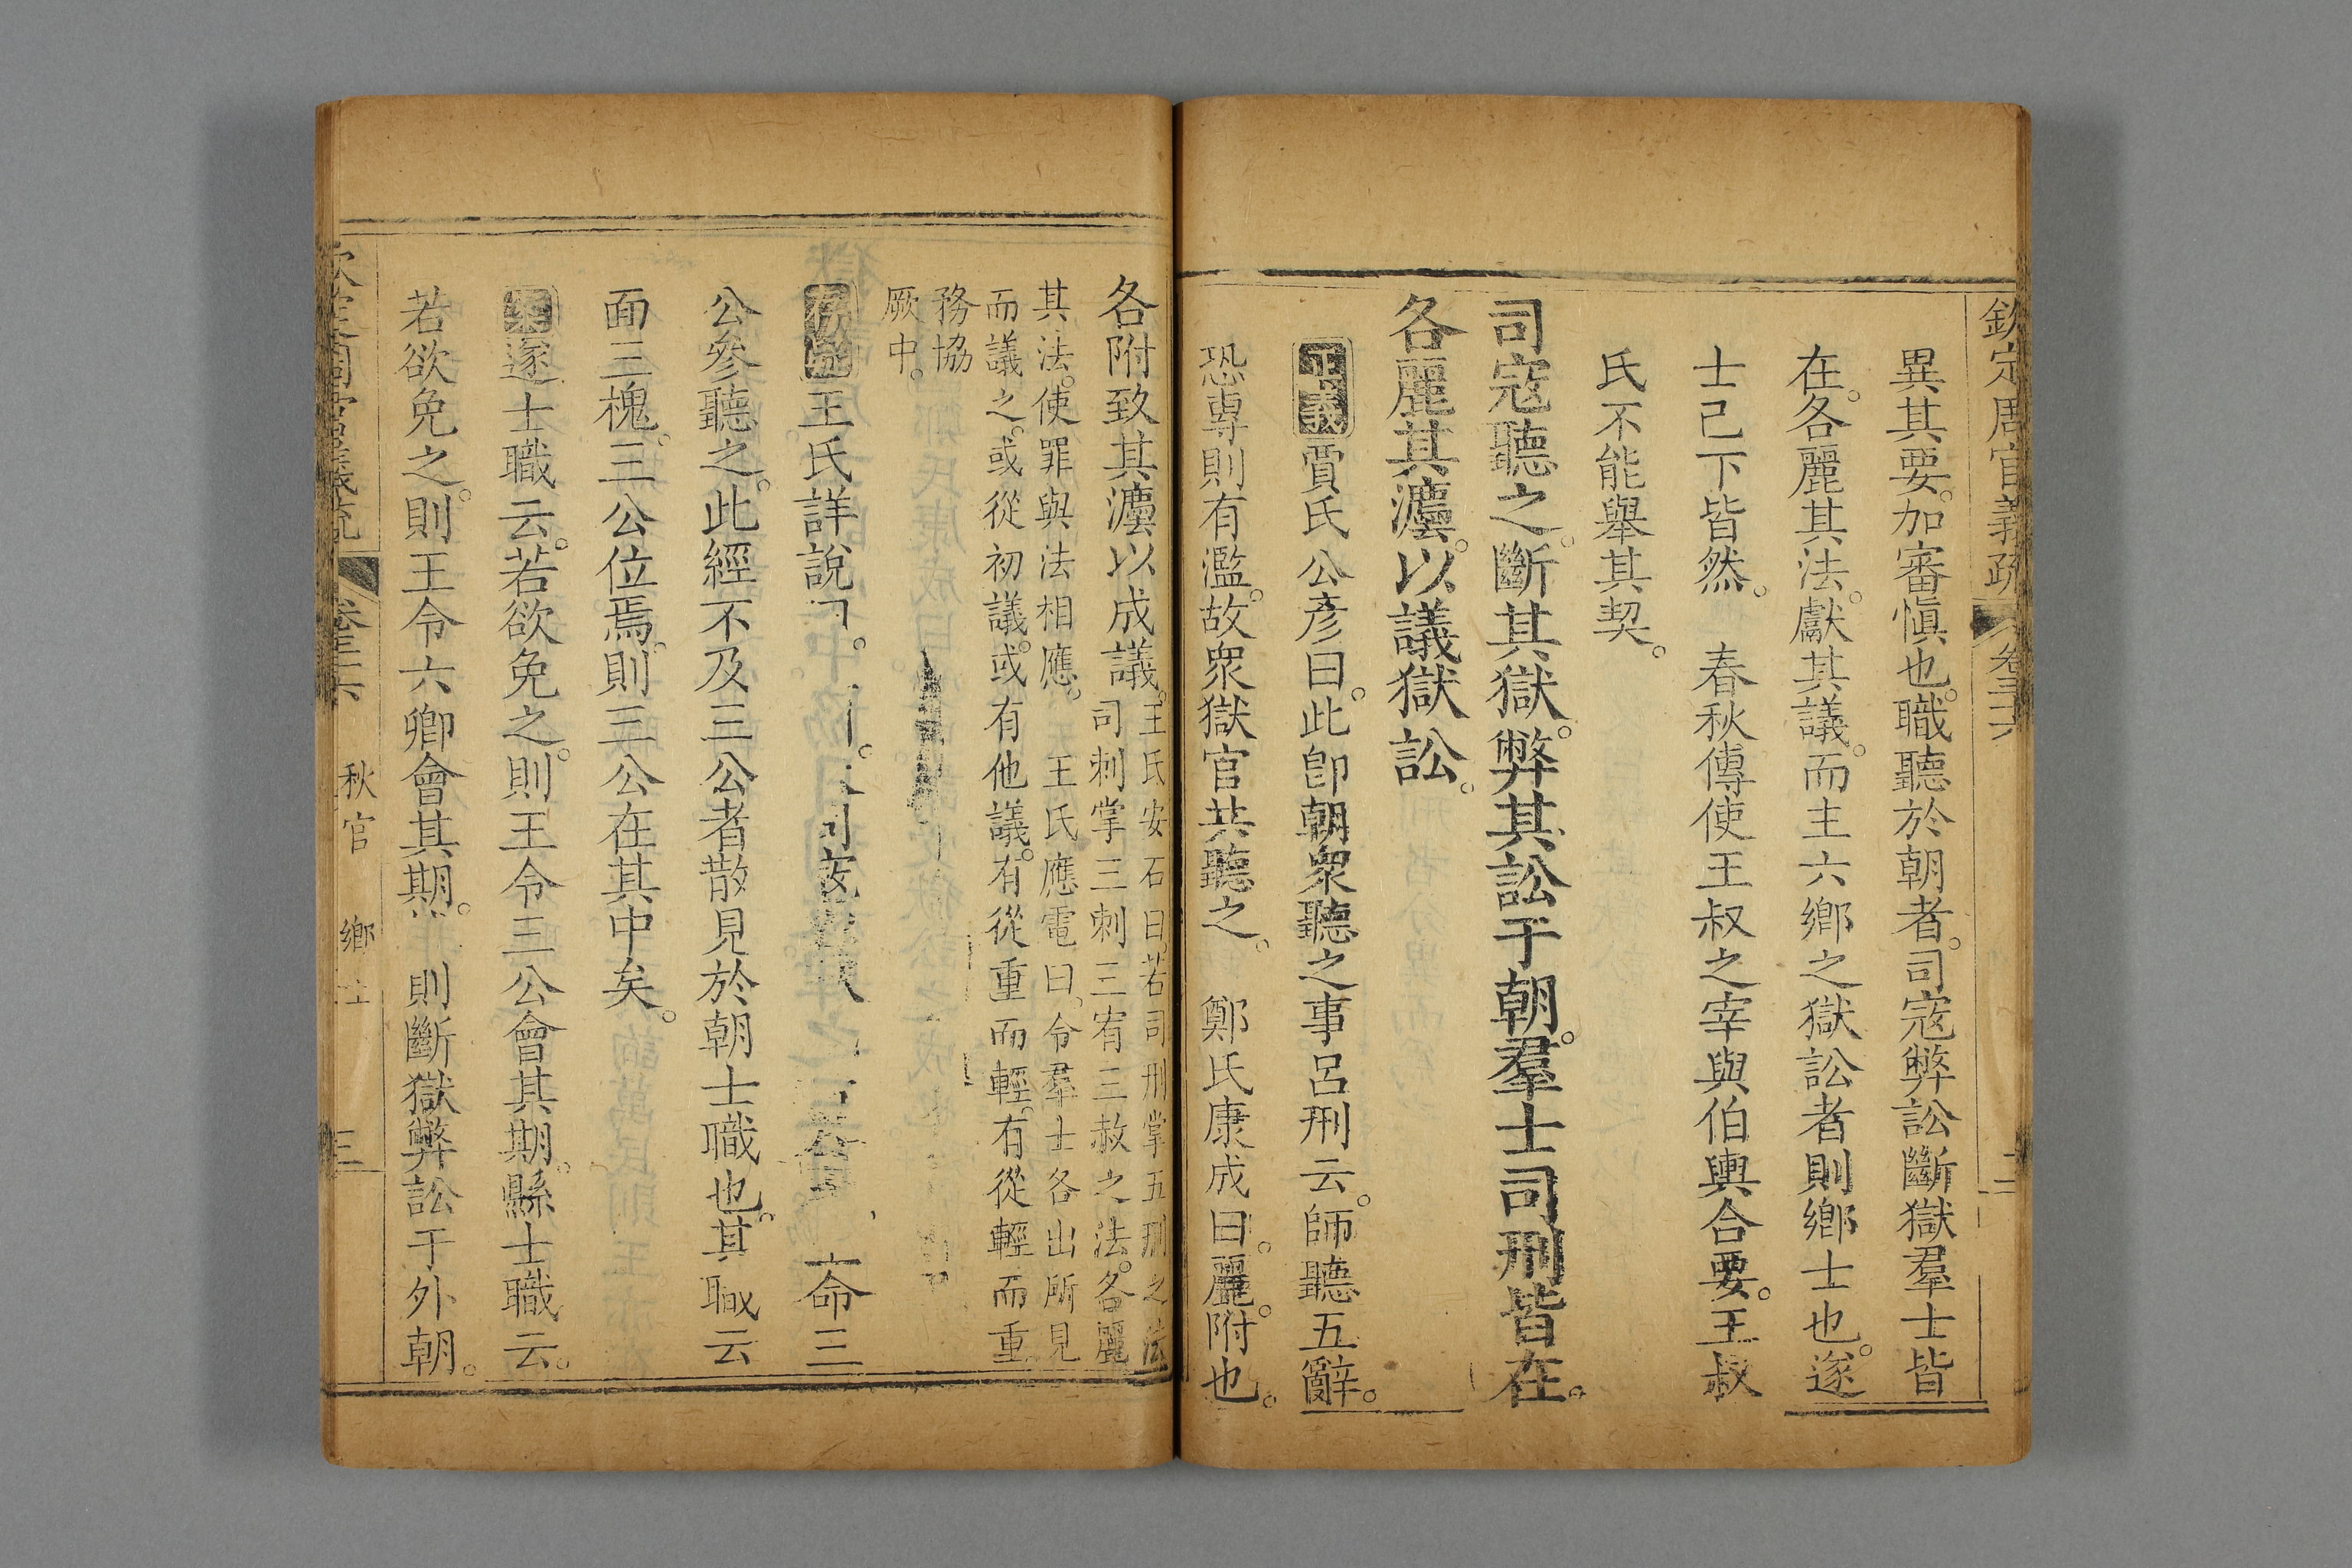 欽定周官義疏 卷三十六 二
異其要。加審慎也。職聽於朝者。司寇弊訟斷獄羣士皆
在。各麗其法。獻其議。而主六鄉之獄訟者則鄉士也。遂
士已下皆然。 春秋傳使王叔之宰與伯輿合要。王叔
氏不能舉其契。
司寇聽之。斷其獄。弊其訟于朝。羣士司刑皆在。
各麗其灋。以議獄訟。
正義賈氏公彥曰。此卽朝衆聽之事呂刑云。師聽五辭。
恐專則有濫。故衆獄官共聽之。 鄭氏康成曰。麗。附也。
各附致其灋以成議。王氏安石曰。若司刑掌五刑之法
司刺掌三刺三宥三赦之法。各麗
其法。使罪與法相應。 王氏應電曰。令羣士各出所見
而議之。或從初議。或有他議。有從重而輕。有從輕而重
務協
厥中。
存疑王氏詳說 命三
公參聽之。此經不及三公者散見於朝士職也。其職云
面三槐。三公位焉。則三公在其中矣。
案遂士職云。若欲免之。則王令三公會其期。縣士職云。
若欲免之。則王令六卿會其期。 則斷獄弊訟于外朝。
欽定周官義疏 卷三十六 秋官 鄉士 三